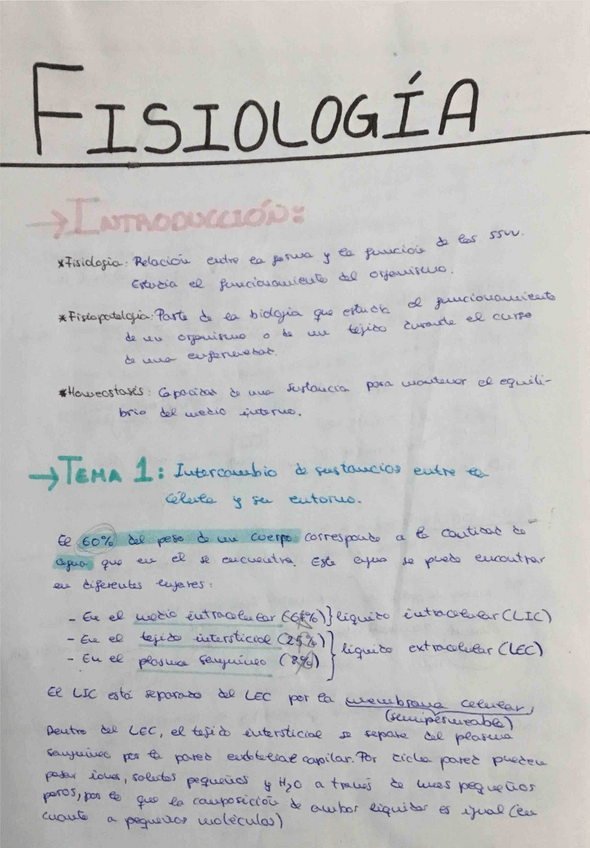 FISIOLOGÍA
→INTRODUCCIÓN:
*Fisiología: Relación entre la forma y la función de los ssvv.
Estudia el funcionamiento del organismo.
*Fisiopatología: Parte de la biología que estudia el funcionamiento
de un organismo o de un tejido durante el curso
de una enfermedad.
*Homeostasis: Capacidad de una sustancia para mantener el equili-
brio del medio interno.
→TEMA 1: Intercambio de sustancias entre la
célula y su entorno.
El 60% del peso de un cuerpo corresponde a la cantidad de
agua que en él se encuentra. Este agua se puede encontrar
en diferentes lugares:
- En el medio intracelular (66%) } líquido intracelular (LIC)
- En el tejido intersticial (25%)
- En el plasma sanguíneo (8%) } líquido extracelular (LEC)
El LIC está separado del LEC por la membrana celular,
(semipermeable)
Dentro del LEC, el tejido intersticial se separa del plasma
sanguíneo por la pared endotelial capilar. Por dicha pared pueden
pasar iones, solutos pequeños y H2O a través de unos pequeños
poros, por lo que la composición de ambos líquidos es igual (en
cuanto a pequeñas moléculas)